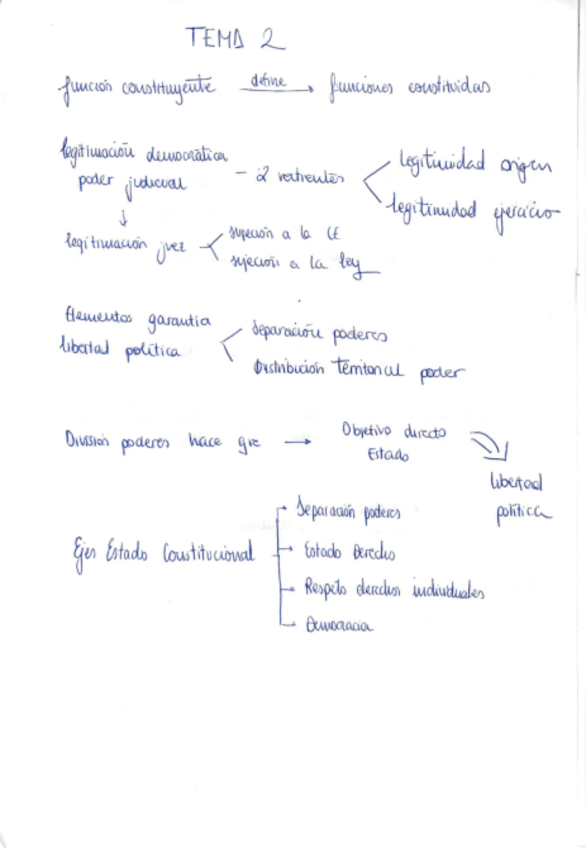 TEMA 2
función constituyente define → funciones constituidas
legitimación democrática
poder judicial - 2 vertientes
legitimidad origen
legitimidad ejercicio
↓
legitimación juez
sujeción a la CE
sujeción a la ley
Elementos garantía
libertad política
Separación poderes
Distribución territorial poder
División poderes hace que → Objetivo directo
Estado
libertad
política
Ejes Estado Constitucional
Separación poderes
Estado Derecho
Respeto derechos individuales
Democracia